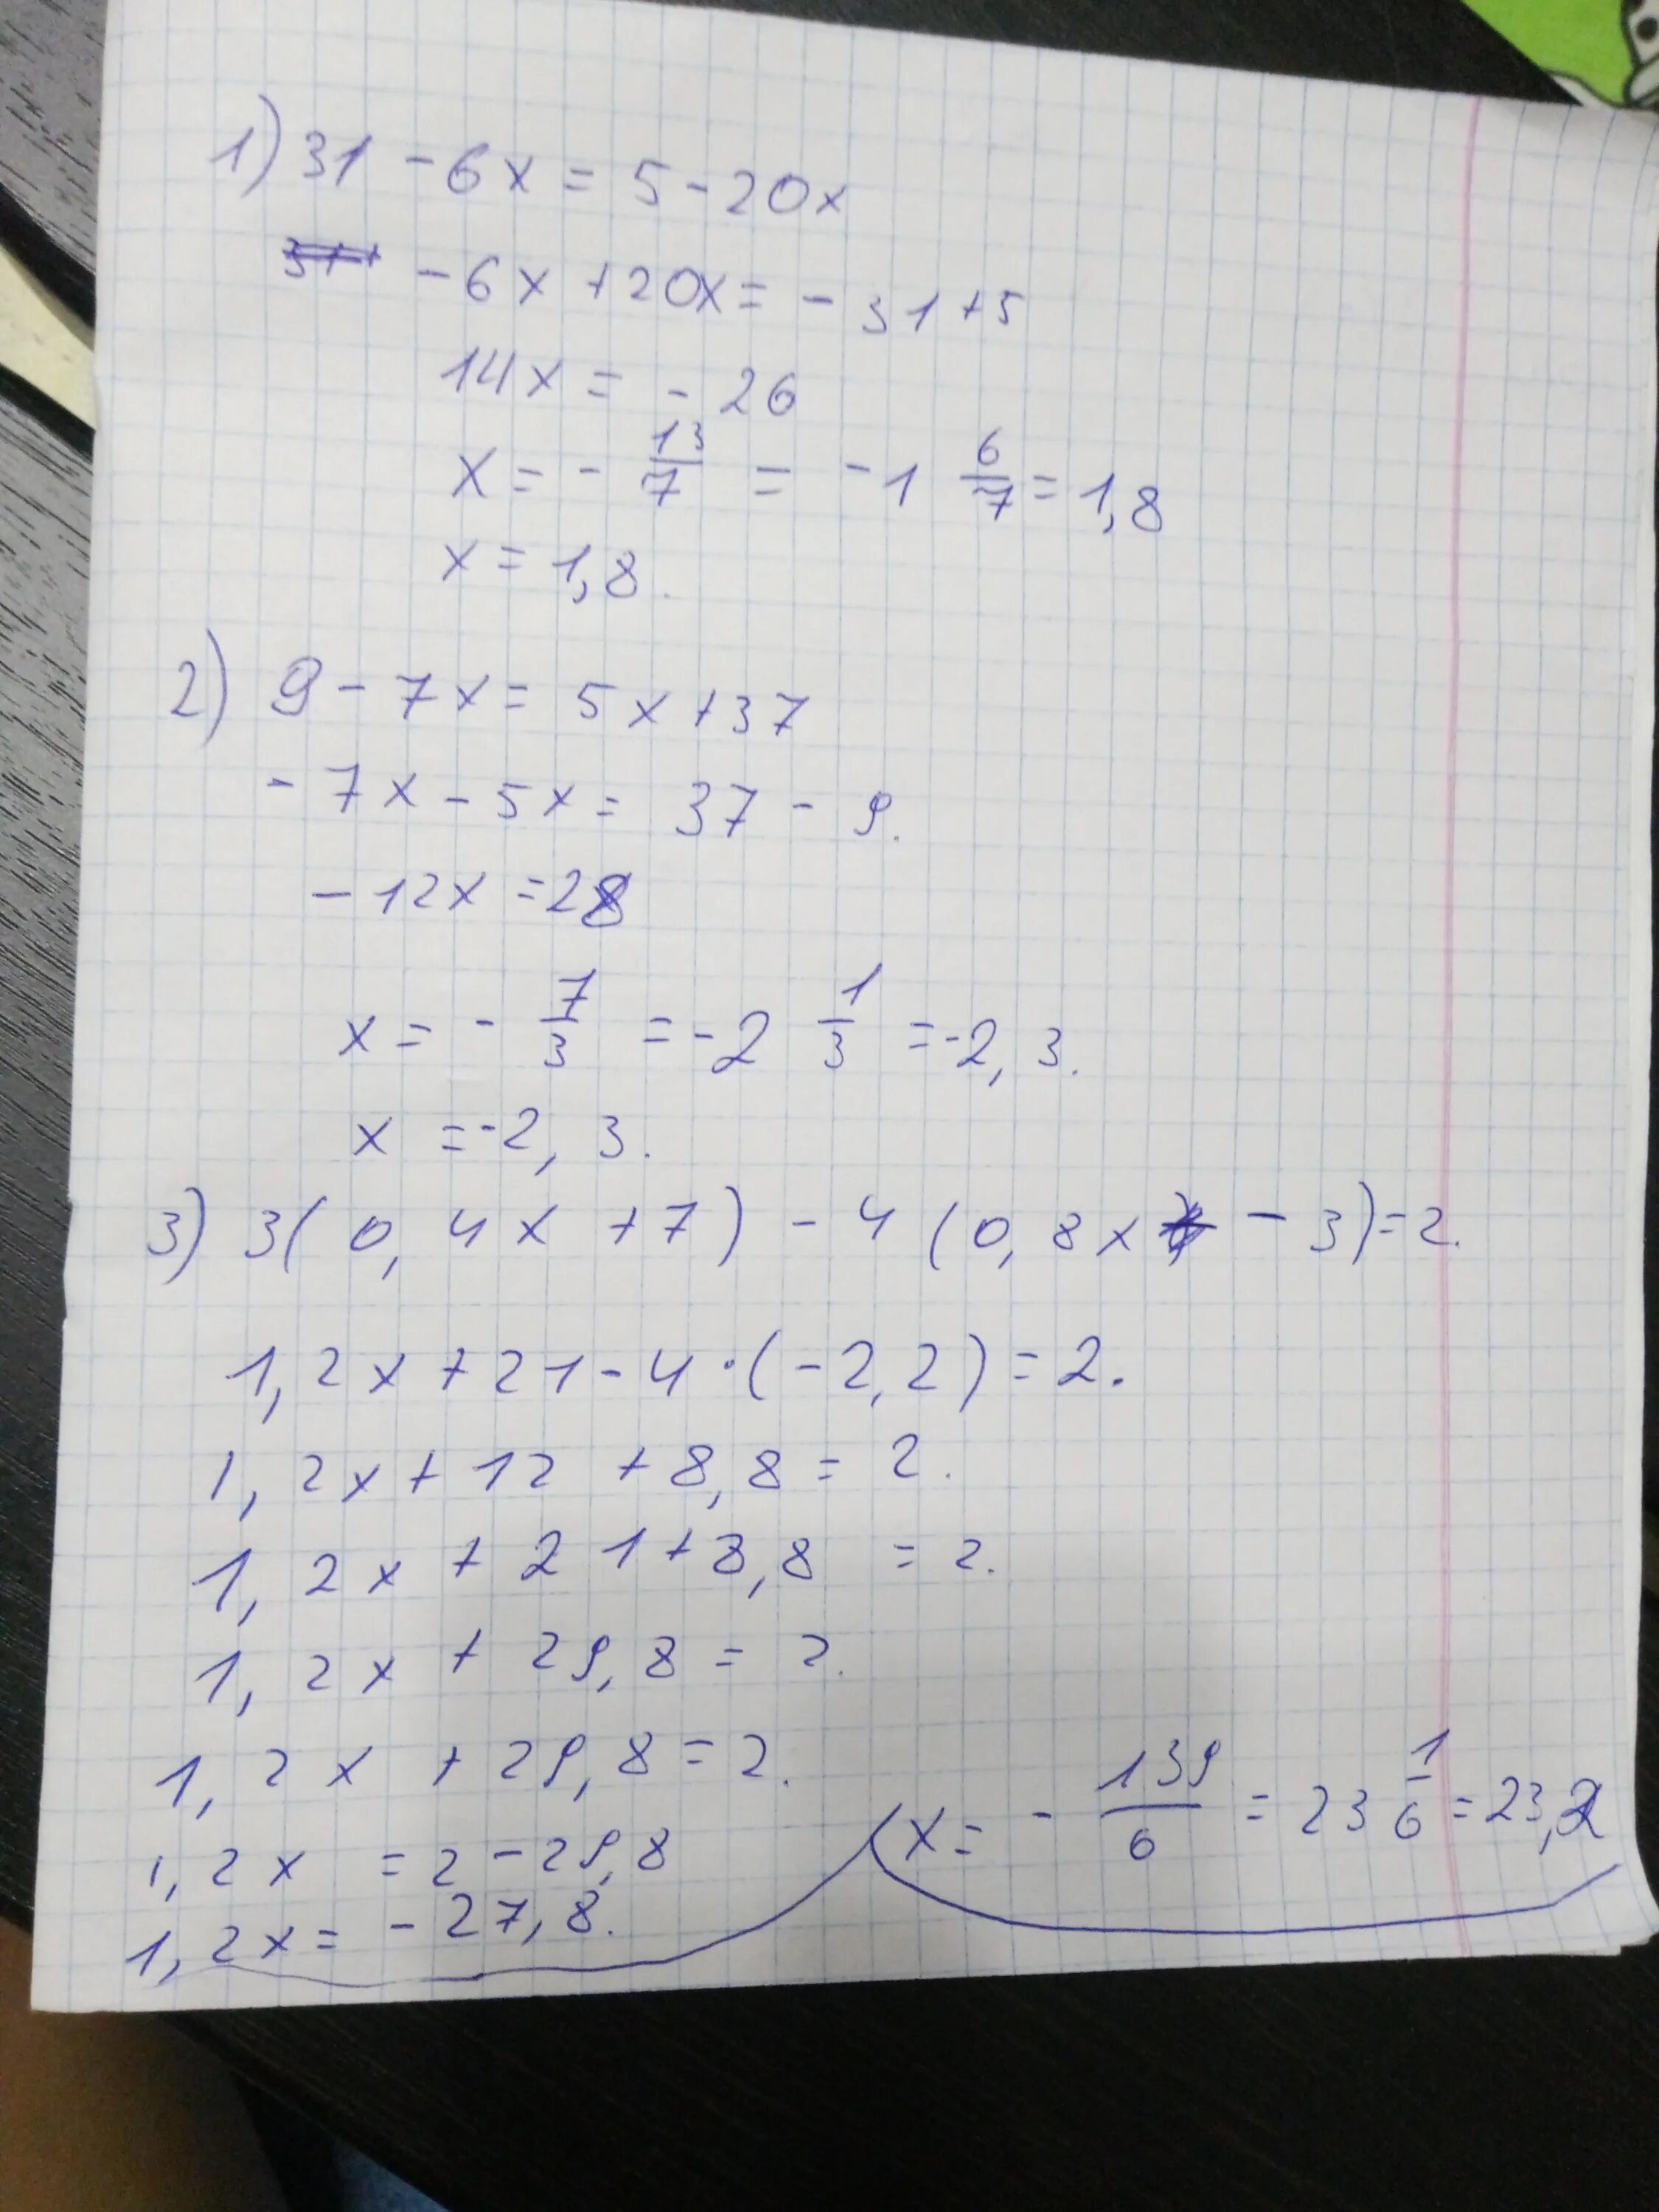 1) 31 - 6x = 5 - 20x
- 6x + 20x = - 31 + 5
14x = - 26
x = - 13/7 = - 1 6/7 = 1,8
x = 1,8.
2) 9 - 7x = 5x + 37
- 7x - 5x = 37 - 9.
- 12x = 28
x = - 7/3 = - 2 1/3 = -2, 3.
x = -2, 3.
3) 3( 0, 4x + 7 ) - 4 ( 0, 8x - 3) = 2.
1, 2x + 21 - 4 · ( - 2, 2 ) = 2.
1, 2x + 12 + 8, 8 = 2.
1, 2x + 21 + 8, 8 = 2.
1, 2x + 29, 8 = 2.
1, 2x + 29, 8 = 2.
1, 2x = 2 - 29, 8
1, 2x = - 27, 8.
x = - 139/6 = 23 1/6 = 23,2